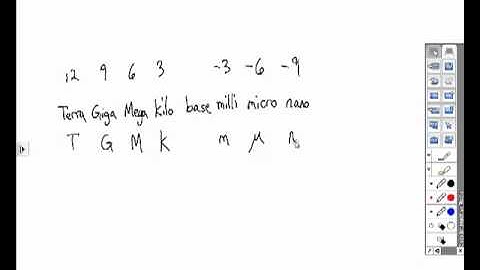 12 9 6 3 -3 -6 -9
Terra Giga Mega kilo base milli micro nano
T G M K m μ n